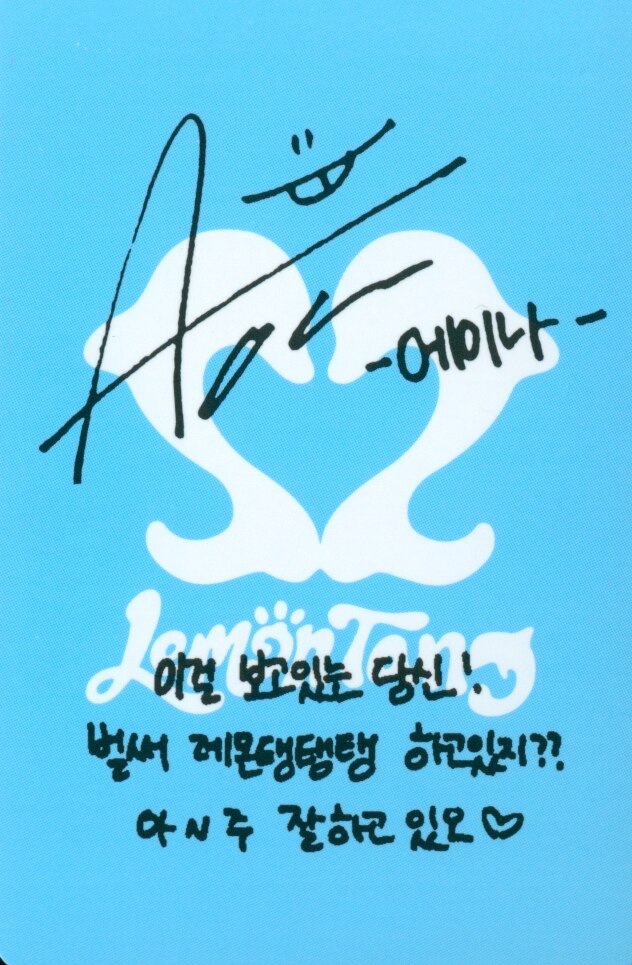 -에이나-
Lemon Tang
이걸 보고있는 당신!
벌써 레몬탱탱탱 하고있지??
아N주 잘하고 있오♡